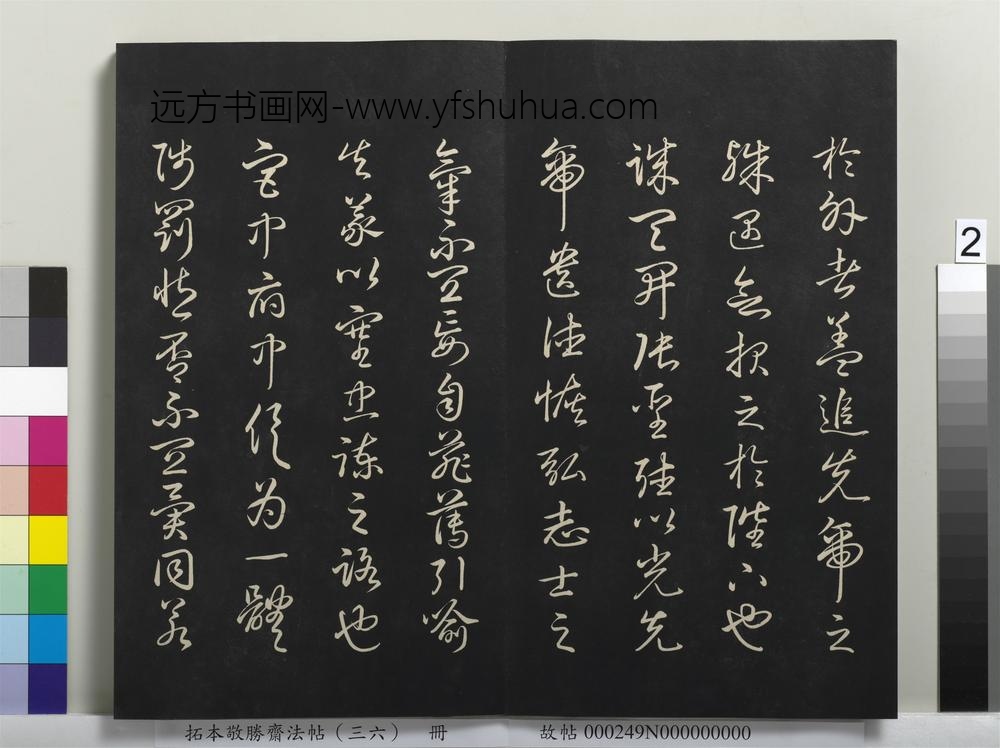 远方书画网-www.yfshuhua.com
於外者蓋追先帝之
殊遇欲報之於陛下也
誠宜開張聖聽以光先
帝遺德恢弘志士之
氣不宜妄自菲薄引喻
失義以塞忠諫之路也
宮中府中俱為一體
陟罰臧否不宜異同若
2
拓本敬勝齋法帖（三六） 冊
故帖 000249N000000000